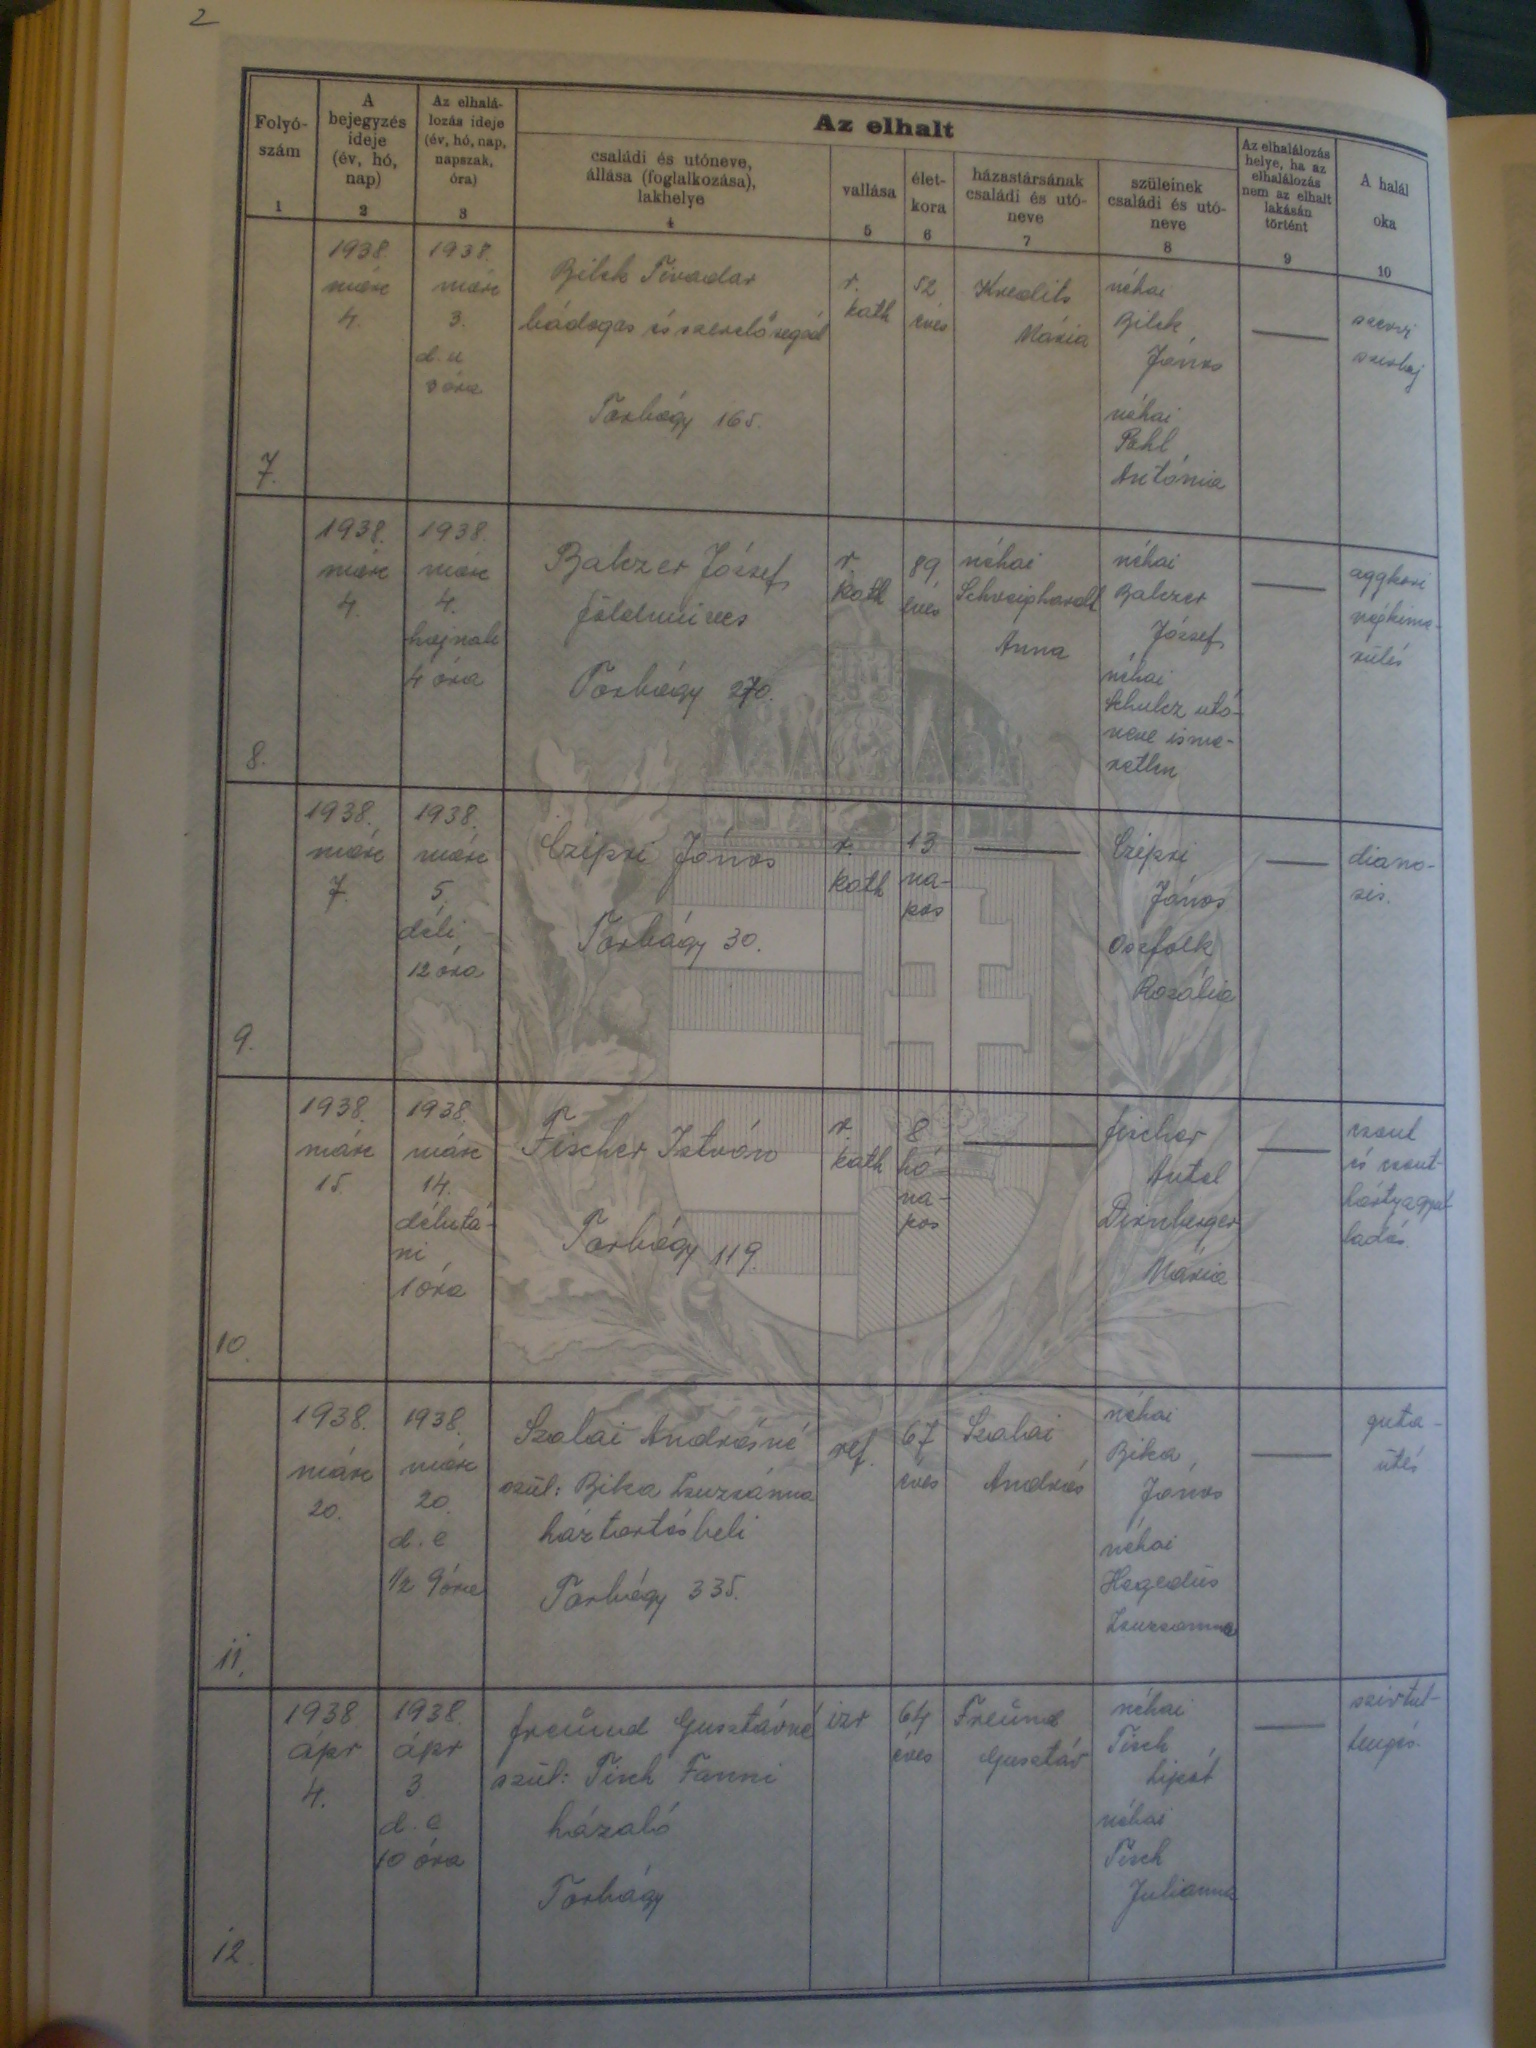 2
Folyó-
szám
1
A
bejegyzés
ideje
(év, hó,
nap)
2
Az elhalá-
lozás ideje
(év, hó, nap,
napszak,
óra)
3
Az elhalt
családi és utóneve,
állása (foglalkozása),
lakhelye
4
vallása
5
élet-
kora
6
házastársának
családi és utó-
neve
7
szüleinek
családi és utó-
neve
8
Az elhalálozás
helye, ha az
elhalálozás
nem az elhalt
lakásán
történt
9
A halál
oka
10
7.
1938.
márc
4.
1938.
márc
3.
d. u
3 óra
Bilek Tivadar
bádogos és szerelő segéd
Torbágy 165.
r.
kath
52
éves
Kredits
Mária
néhai
Bilek
János
néhai
Pohl
Antónia
szervi
szivbaj
8.
1938.
márc
4.
1938.
márc
4.
hajnali
4 óra
Balczer József
földmüves
Torbágy 270.
r.
kath
89
éves
néhai
Schveiphardt
Anna
néhai
Balczer
József
néhai
Schulcz utó-
neve isme-
retlen
aggkori
végkime-
rülés
9.
1938.
márc
7.
1938.
márc
5.
déli
12 óra
Czipri János
Torbágy 30.
r.
kath
13
na-
pos
Czipri
János
Oszfolk
Rozália
10.
1938.
márc
15.
1938.
márc
14.
délutá-
ni
1 óra
Fischer István
Torbágy 119.
r.
kath
8
hó-
na-
pos
Fischer
Antal
Dirnberger
Mária
csont
és csont-
11.
1938.
márc
20.
1938.
márc
20.
d. e
1/2 9 óra
Szalai Andrásné
szül: Bika Zsuzsánna
háztartásbeli
Torbágy 335.
ref.
67
éves
Szalai
András
néhai
Bika
János
néhai
Hegedüs
Zsuzsanna
guta-
ütés
12.
1938
ápr
4.
1938.
ápr
3.
d. e
10 óra
Freünd Gusztávné
szül: Tisch Fanni
házaló
Torbágy
izr
64
éves
Freünd
Gusztáv
néhai
Tisch
Lipót
néhai
Tisch
Julianna